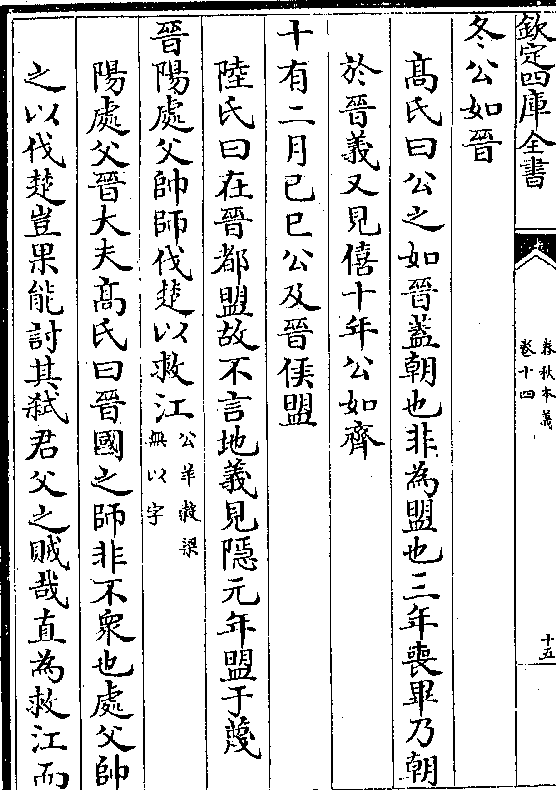 欽定四庫全書
春秋本義
卷十四
十五
冬公如晉
髙氏曰公之如晉蓋朝也非為盟也三年喪畢乃朝
於晉義又見僖十年公如齊
十有二月已巳公及晉侯盟
陸氏曰在晉都盟故不言地義見隱元年盟于蔑
晉陽處父帥師伐楚以救江公羊穀梁無以字
陽處父晉大夫髙氏曰晉國之師非不衆也處父帥
之以伐楚豈果能討其弑君父之賊哉直為救江而